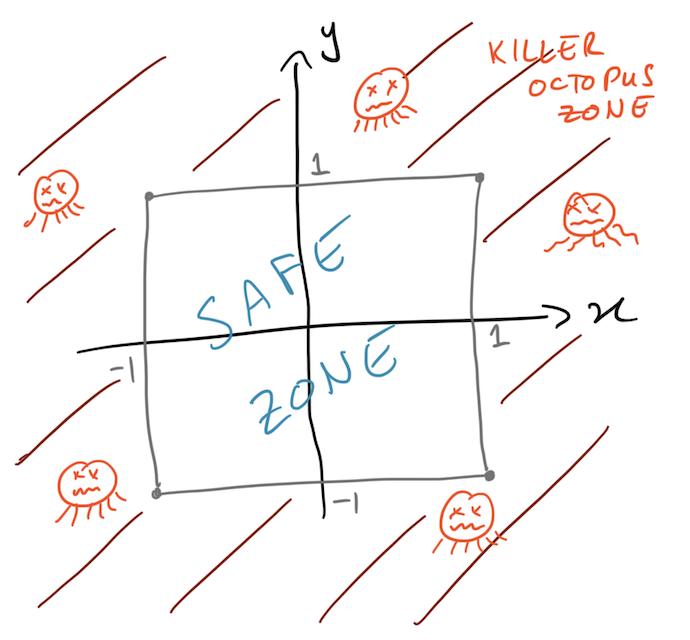 y
KILLER
OCTOPUS
ZONE
1
SAFE
x
-1
1
ZONE
-1